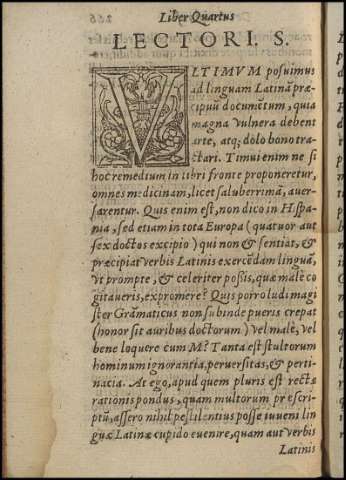 Liber Quartus
LECTORI. S.
VLTIMVM posuimus
ad linguam Latinã præ-
cipuũ documẽtum, quia
magna vulnera debent
arte, atq; dolo bono tra-
ctari. Timui enim ne si
hoc remedium in libri fronte proponeretur,
omnes medicinam, licet saluberrimã, auer-
sarentur. Quis enim est, non dico in Hispa-
nia, sed etiam in tota Europa (quatuor aut
sex doctos excipio) qui non & sentiat, &
præcipiat verbis Latinis exercẽdam linguã,
vt prompte, & celeriter possis, quæ malè co
gitaueris, expromere? Quis porro ludimagi
ster Grãmaticus non subinde pueris crepat
(honor sit auribus doctorum) vel malè, vel
bene loquere cum M? Tanta est stultorum
hominum ignorantia, peruersitas, & perti-
nacia. At ego, apud quem pluris est rectæ
rationis pondus, quam multorum præscri-
ptũ, assero nihil pestilentius posse iuueni lin
guæ Latinæ cupido euenire, quam aut verbis
Latinis